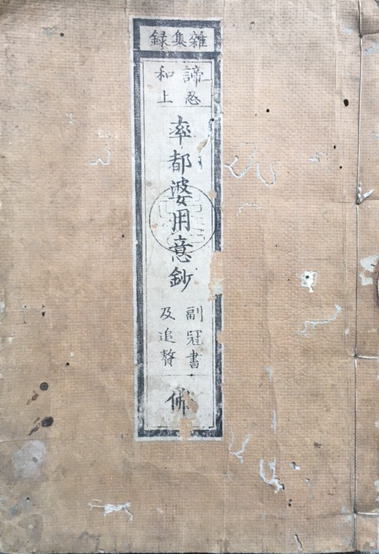 雜集録
諦忍
和上
率都婆用意鈔
副冠書
及追贅
佛